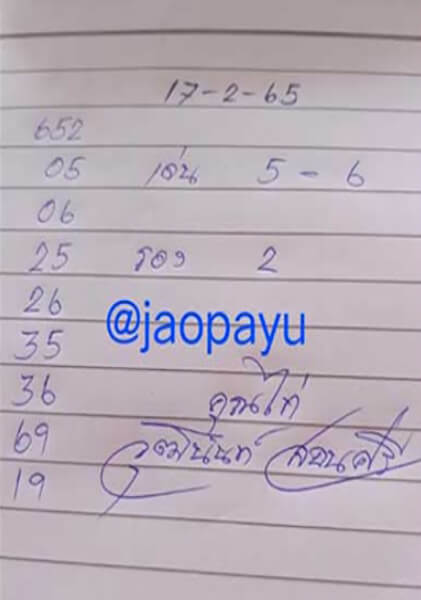 17-2-65
652
05 เด่น 5 - 6
06
25 รอง 2
26
@jaopayu
35
36 คุณไก่
69 วุฒินันท์ สอนศรี
19